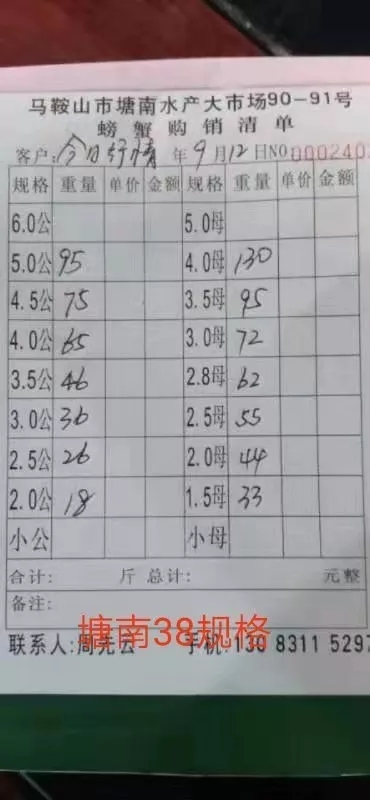 马鞍山市塘南水产大市场90-91号
螃蟹购销清单
客户:今日行情 年9月12日NO 000240
规格 重量 单价 金额 规格 重量 单价 金额
6.0公 5.0母
5.0公 95 4.0母 130
4.5公 75 3.5母 95
4.0公 65 3.0母 72
3.5公 46 2.8母 62
3.0公 36 2.5母 55
2.5公 26 2.0母 44
2.0公 18 1.5母 33
小公 小母
合计: 斤 总计: 元整
备注:
塘南38规格
联系人:周先云 手机:130 8311 5297